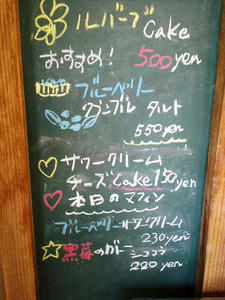 ルバーブ Cake
おすすめ! 500yen
ブルーベリー
タルト
550yen
サワークリーム
チーズCake 150yen
本日のマフィン
ブルーベリー サワークリーム
230yen
黒苺の
220yen